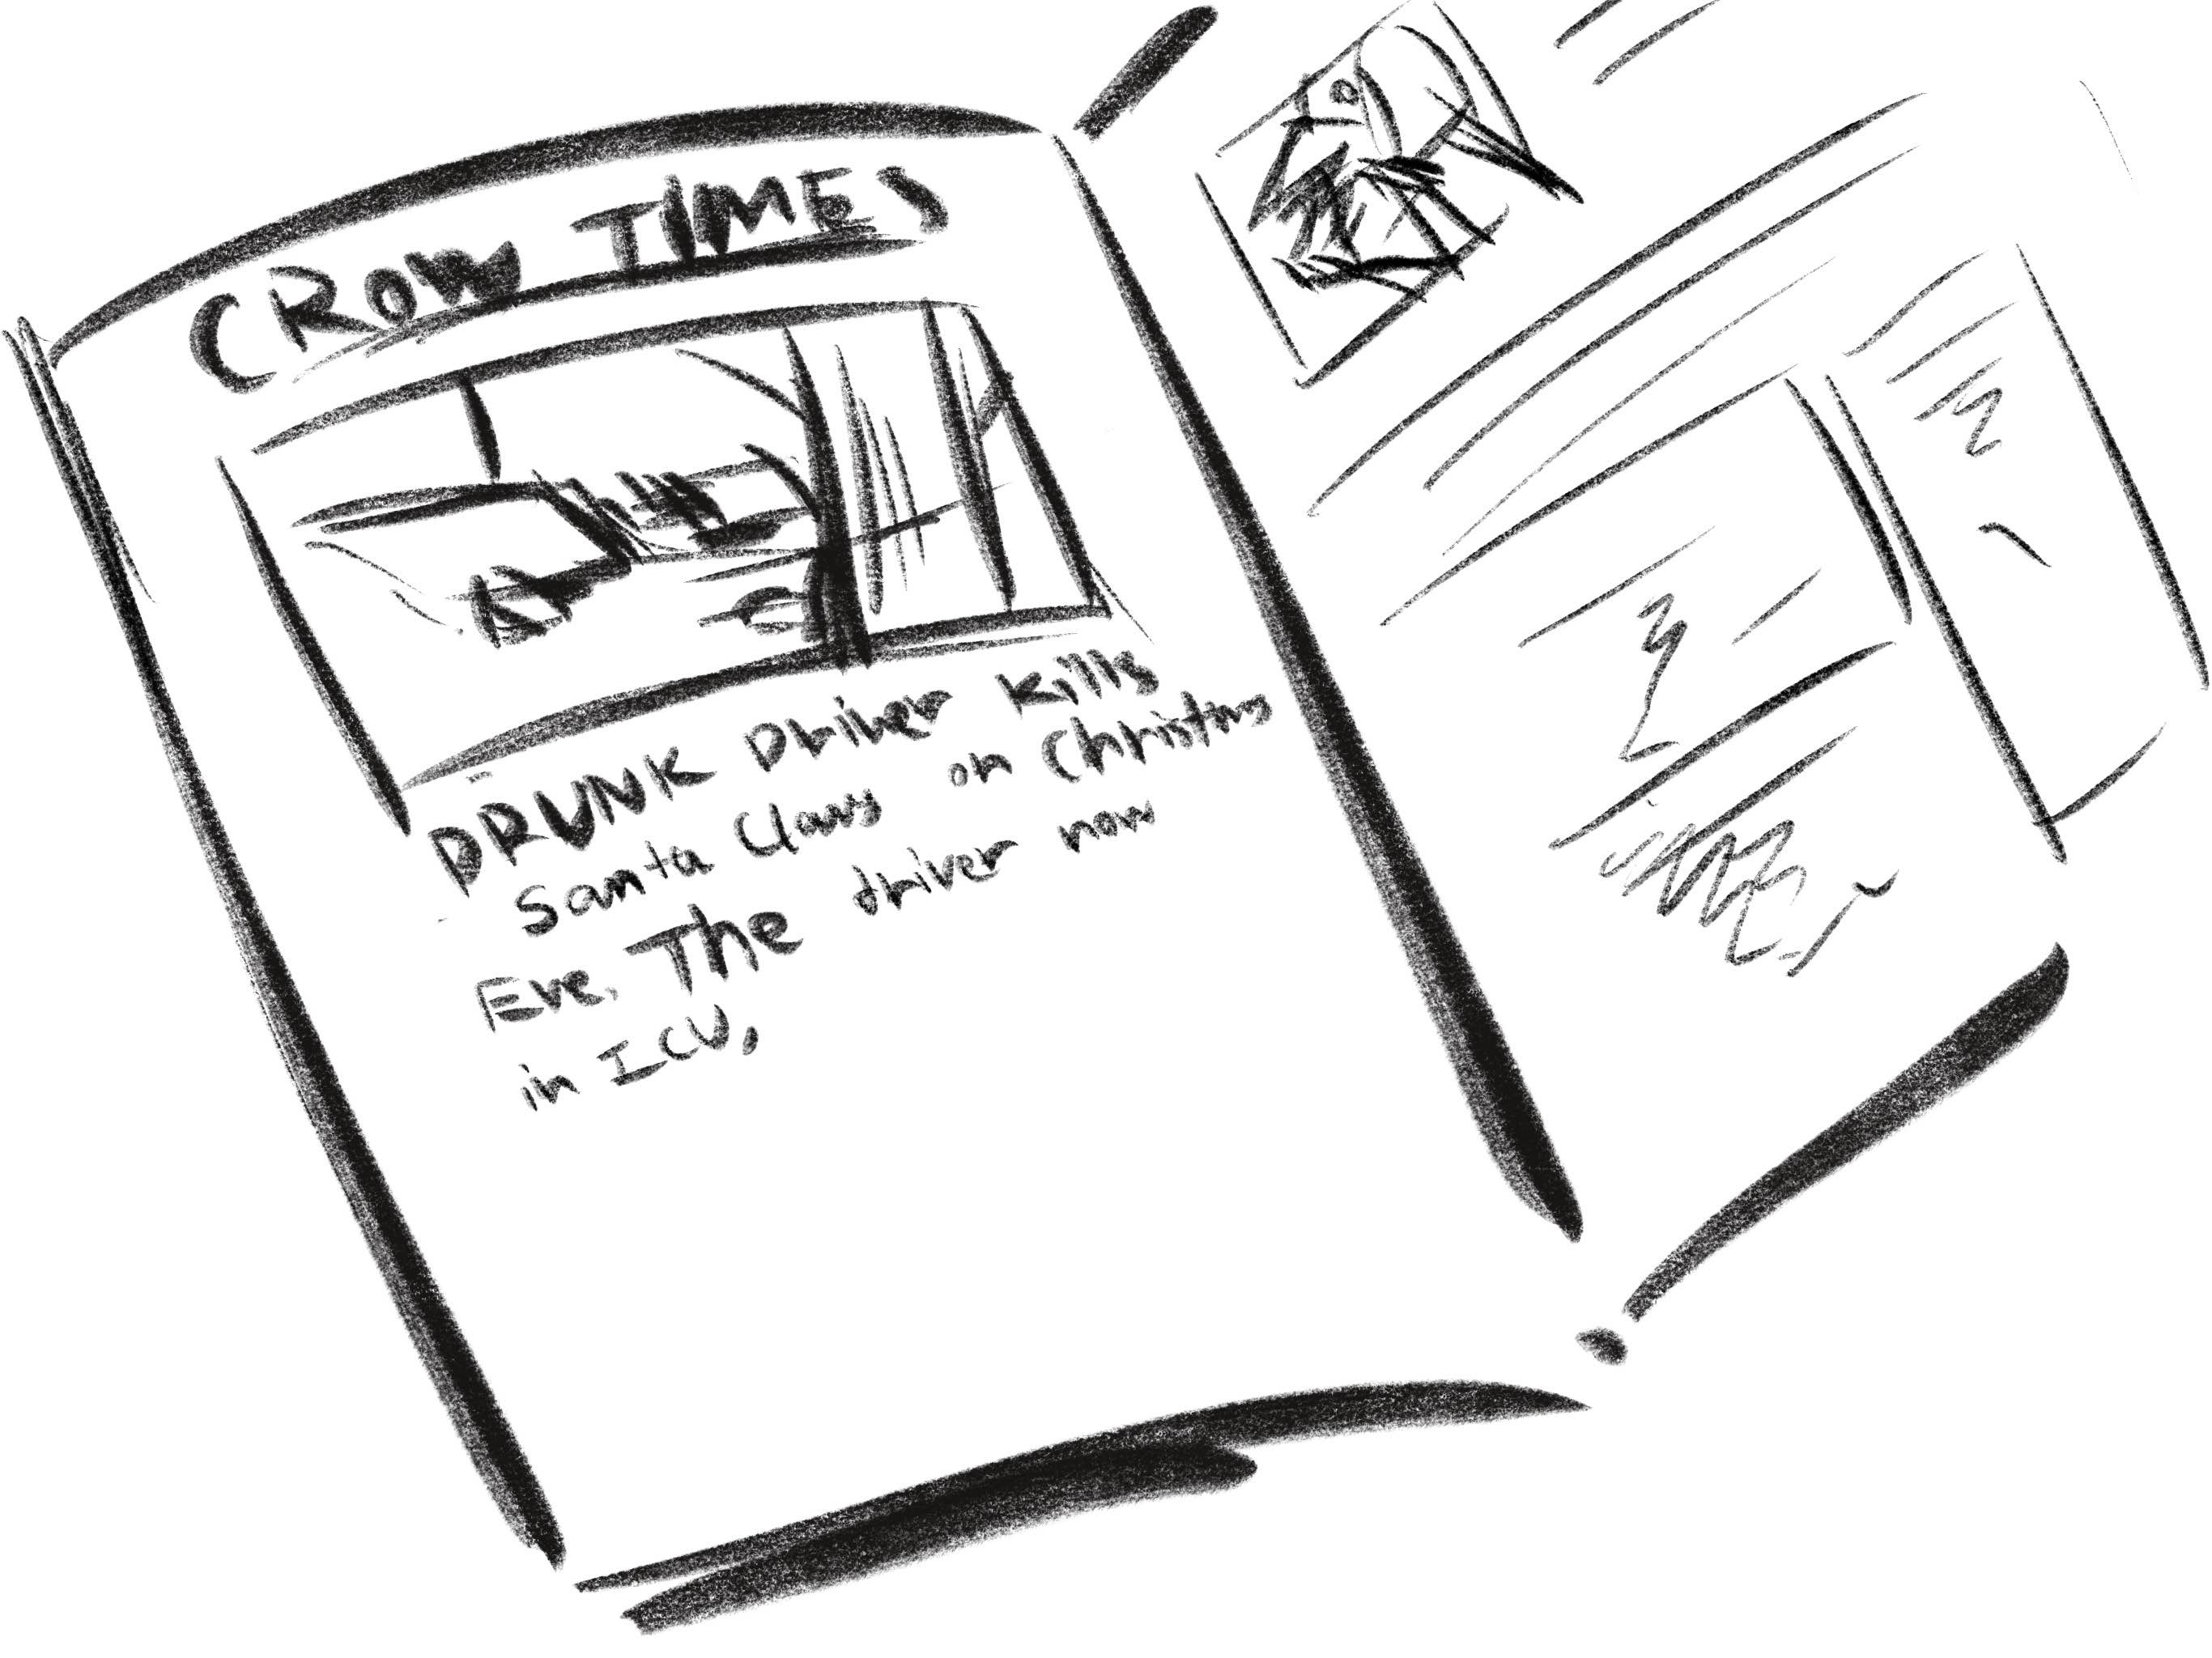 CROW TIMES
DRUNK Driver Kills
Santa Claus on Christmas
Eve. The driver now
in ICU,